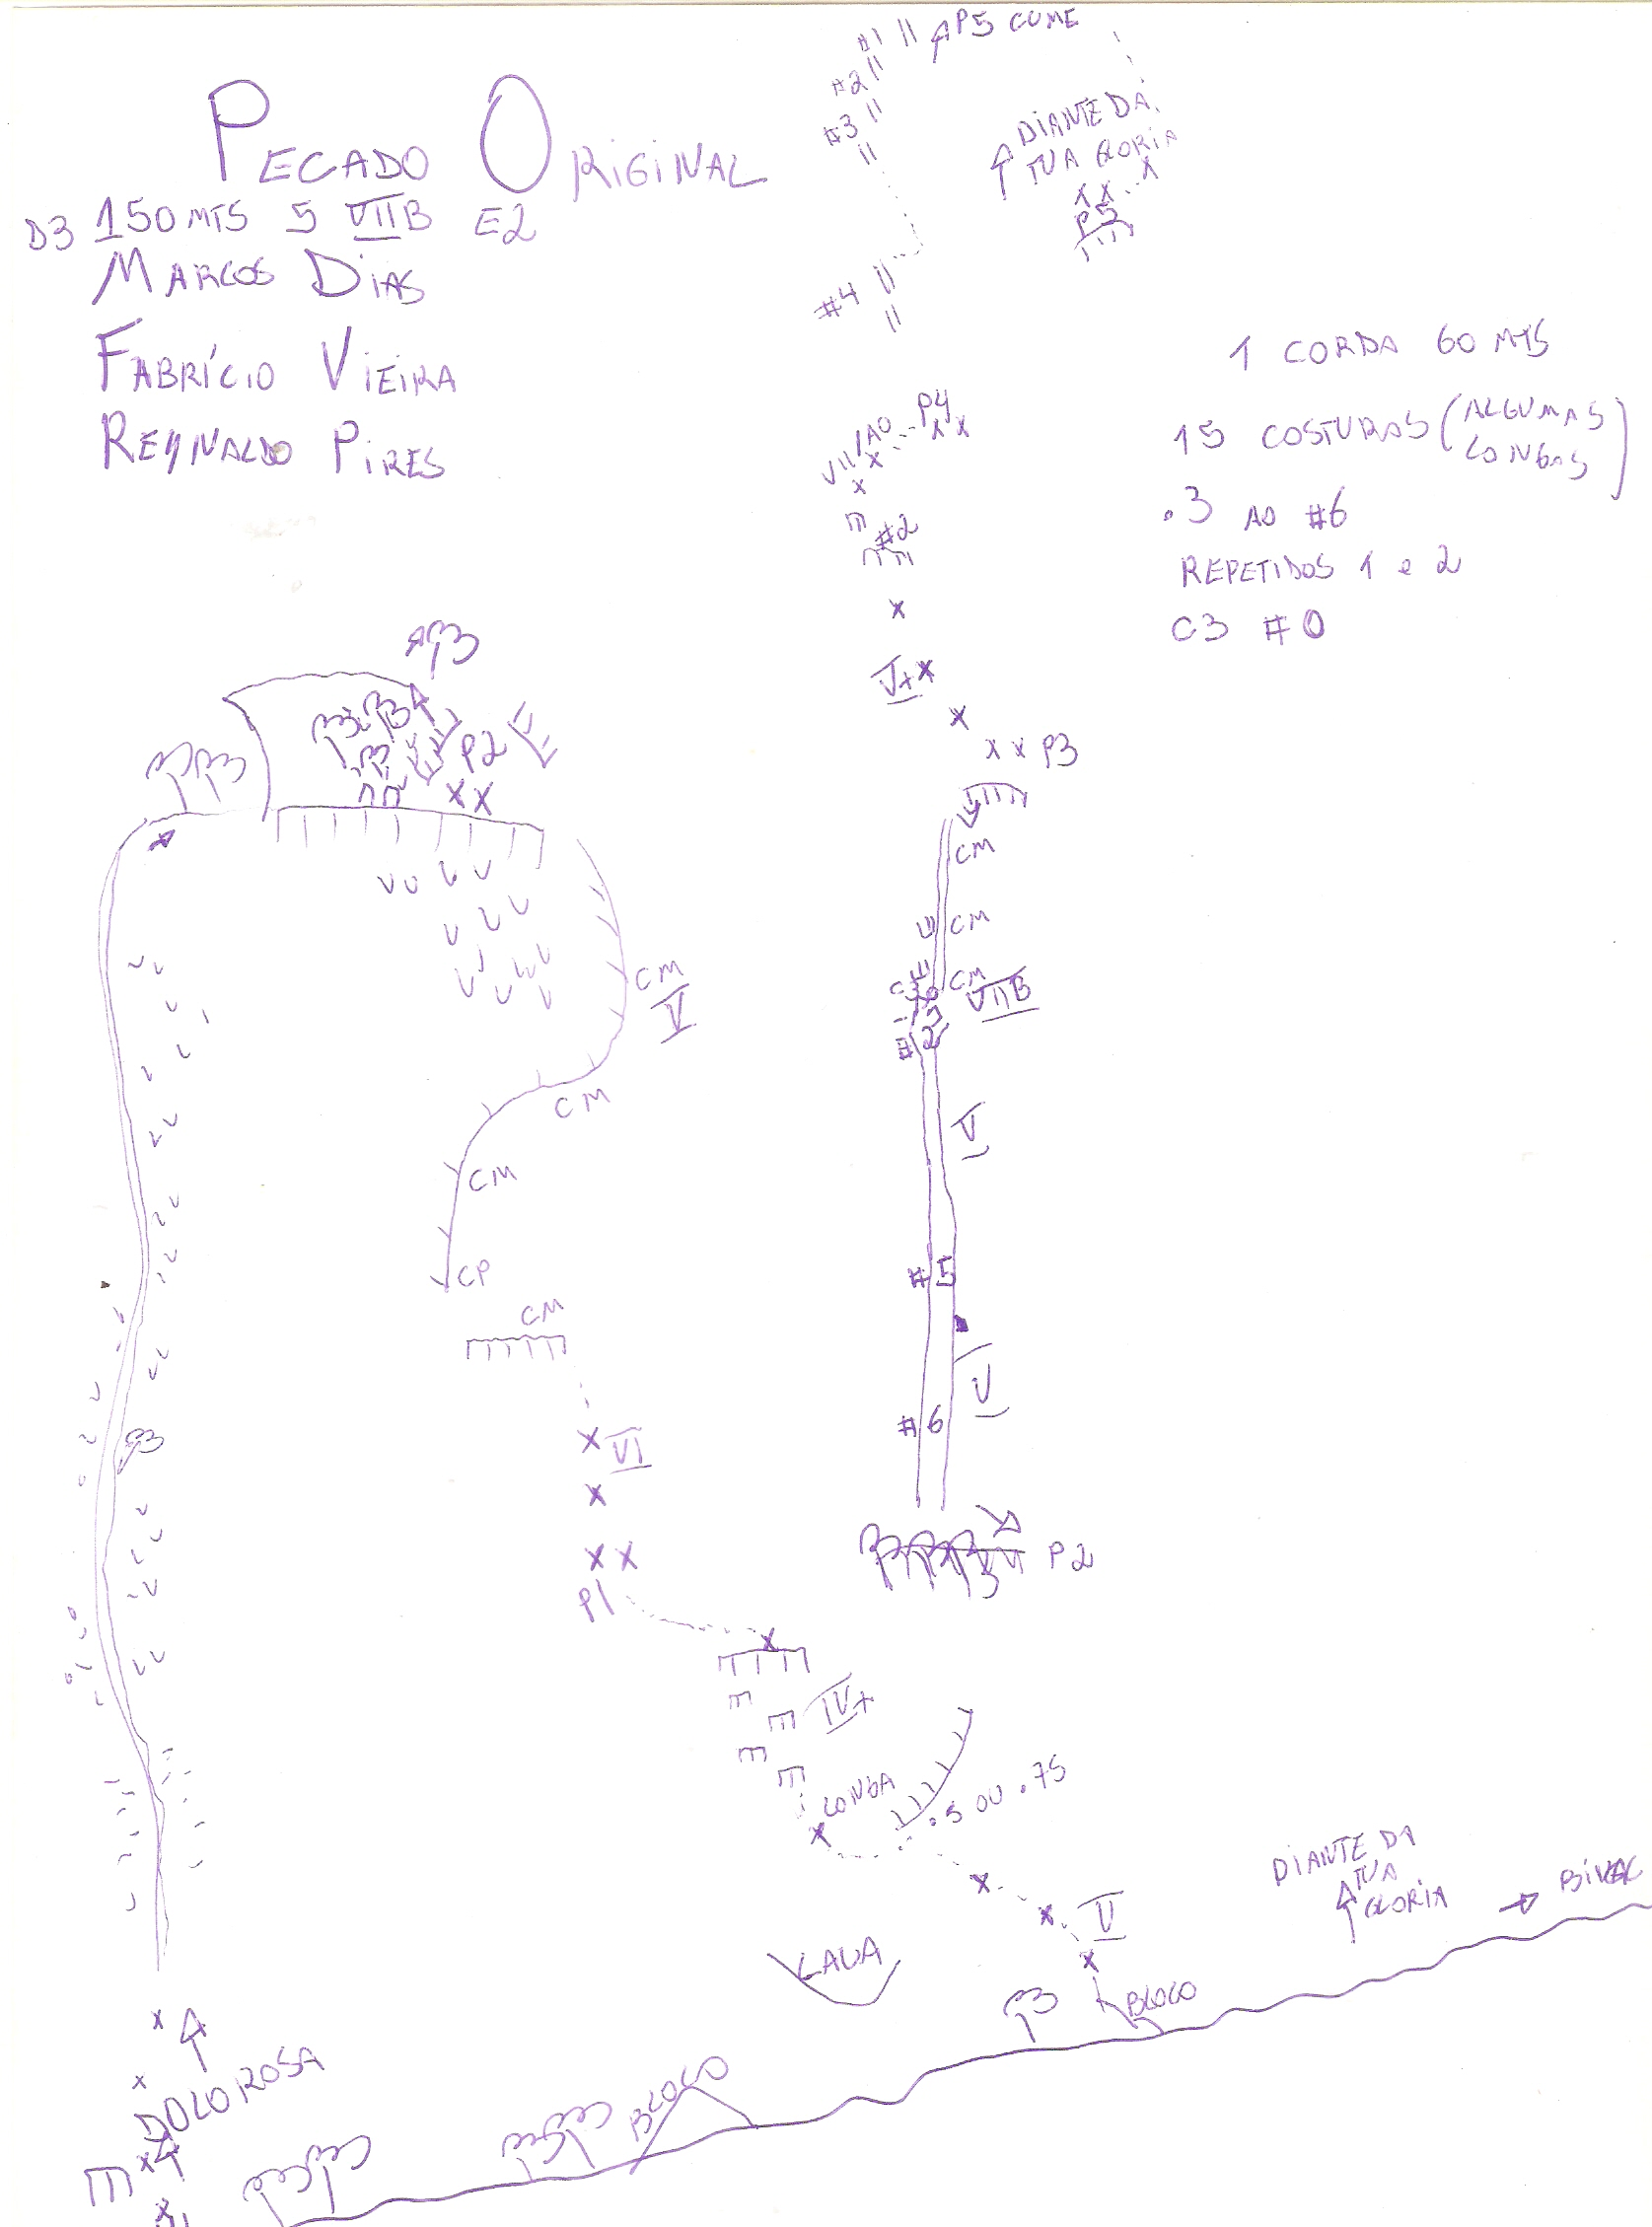 PECADO ORIGINAL
D3 150 MTS 5 VIIB E2
MARCOS DIAS
FABRÍCIO VIEIRA
REYNALDO PIRES
#1
P5 CUME
#2
#3
DIANTE DA
TUA GLORIA
X X X
P5
#4
1 CORDA 60 MTS
15 COSTURAS (ALGUMAS
LONGAS)
.3 AO #6
REPETIDOS 1 e 2
C3 #0
P4
X X
VII/A0
X
X
#2
X
V+ X
X
X X P3
P2
X X
CM
CM
CM
VIIB
#2
V
#5
V
#6
P2
CM
V
CM
CM
CP
CM
X VI
X
X X
P1
X
IV+
LONGA
X
.5 OU .75
X
X V
X
LACA
BLOCO
DIANTE DA
TUA
GLORIA
BIVAC
BLOCO
X
X
DOLOROSA
X
X